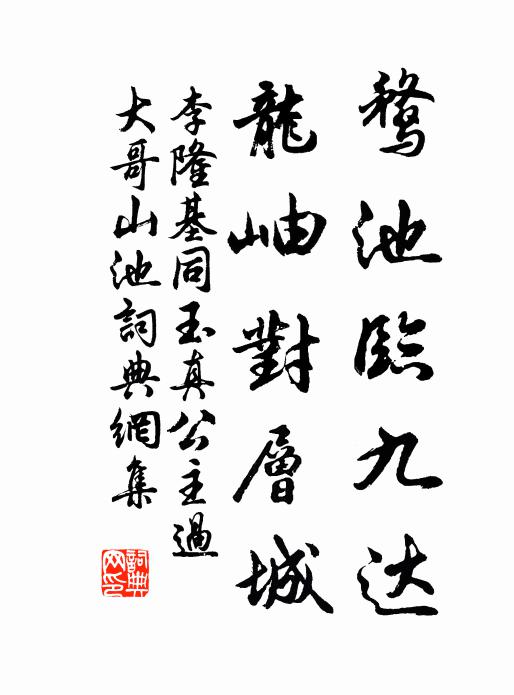 鹜池临九达
龍岫對層城
李隆基同玉真公主過
大哥山池詞典網集
詞典
网印